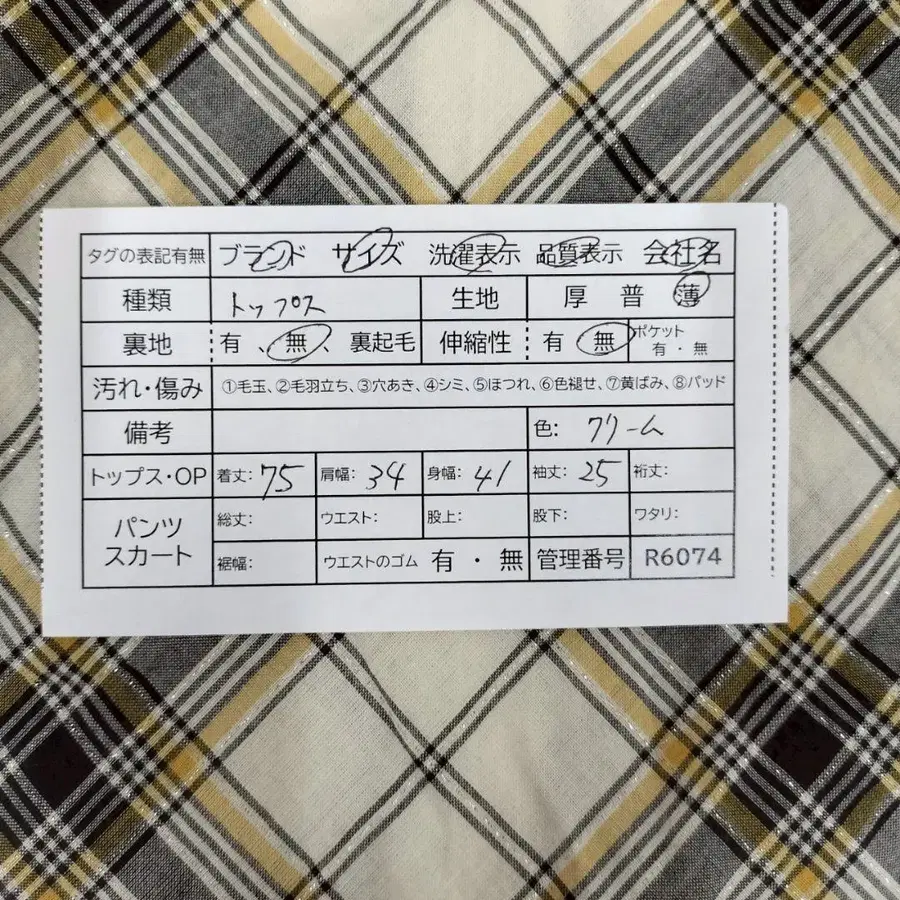 タグの表記有無 ブランド サイズ 洗濯表示 品質表示 会社名
種類 トップス 生地 厚 普 薄
裏地 有 、 無 、 裏起毛 伸縮性 有 無 ポケット 有・無
汚れ・傷み ①毛玉、②毛羽立ち、③穴あき、④シミ、⑤ほつれ、⑥色褪せ、⑦黄ばみ、⑧パッド
備考 色: クリーム
トップス・OP 着丈: 75 肩幅: 34 身幅: 41 袖丈: 25 裄丈:
パンツ スカート 総丈: ウエスト: 股上: 股下: ワタリ:
裾幅: ウエストのゴム 有 ・ 無 管理番号 R6074